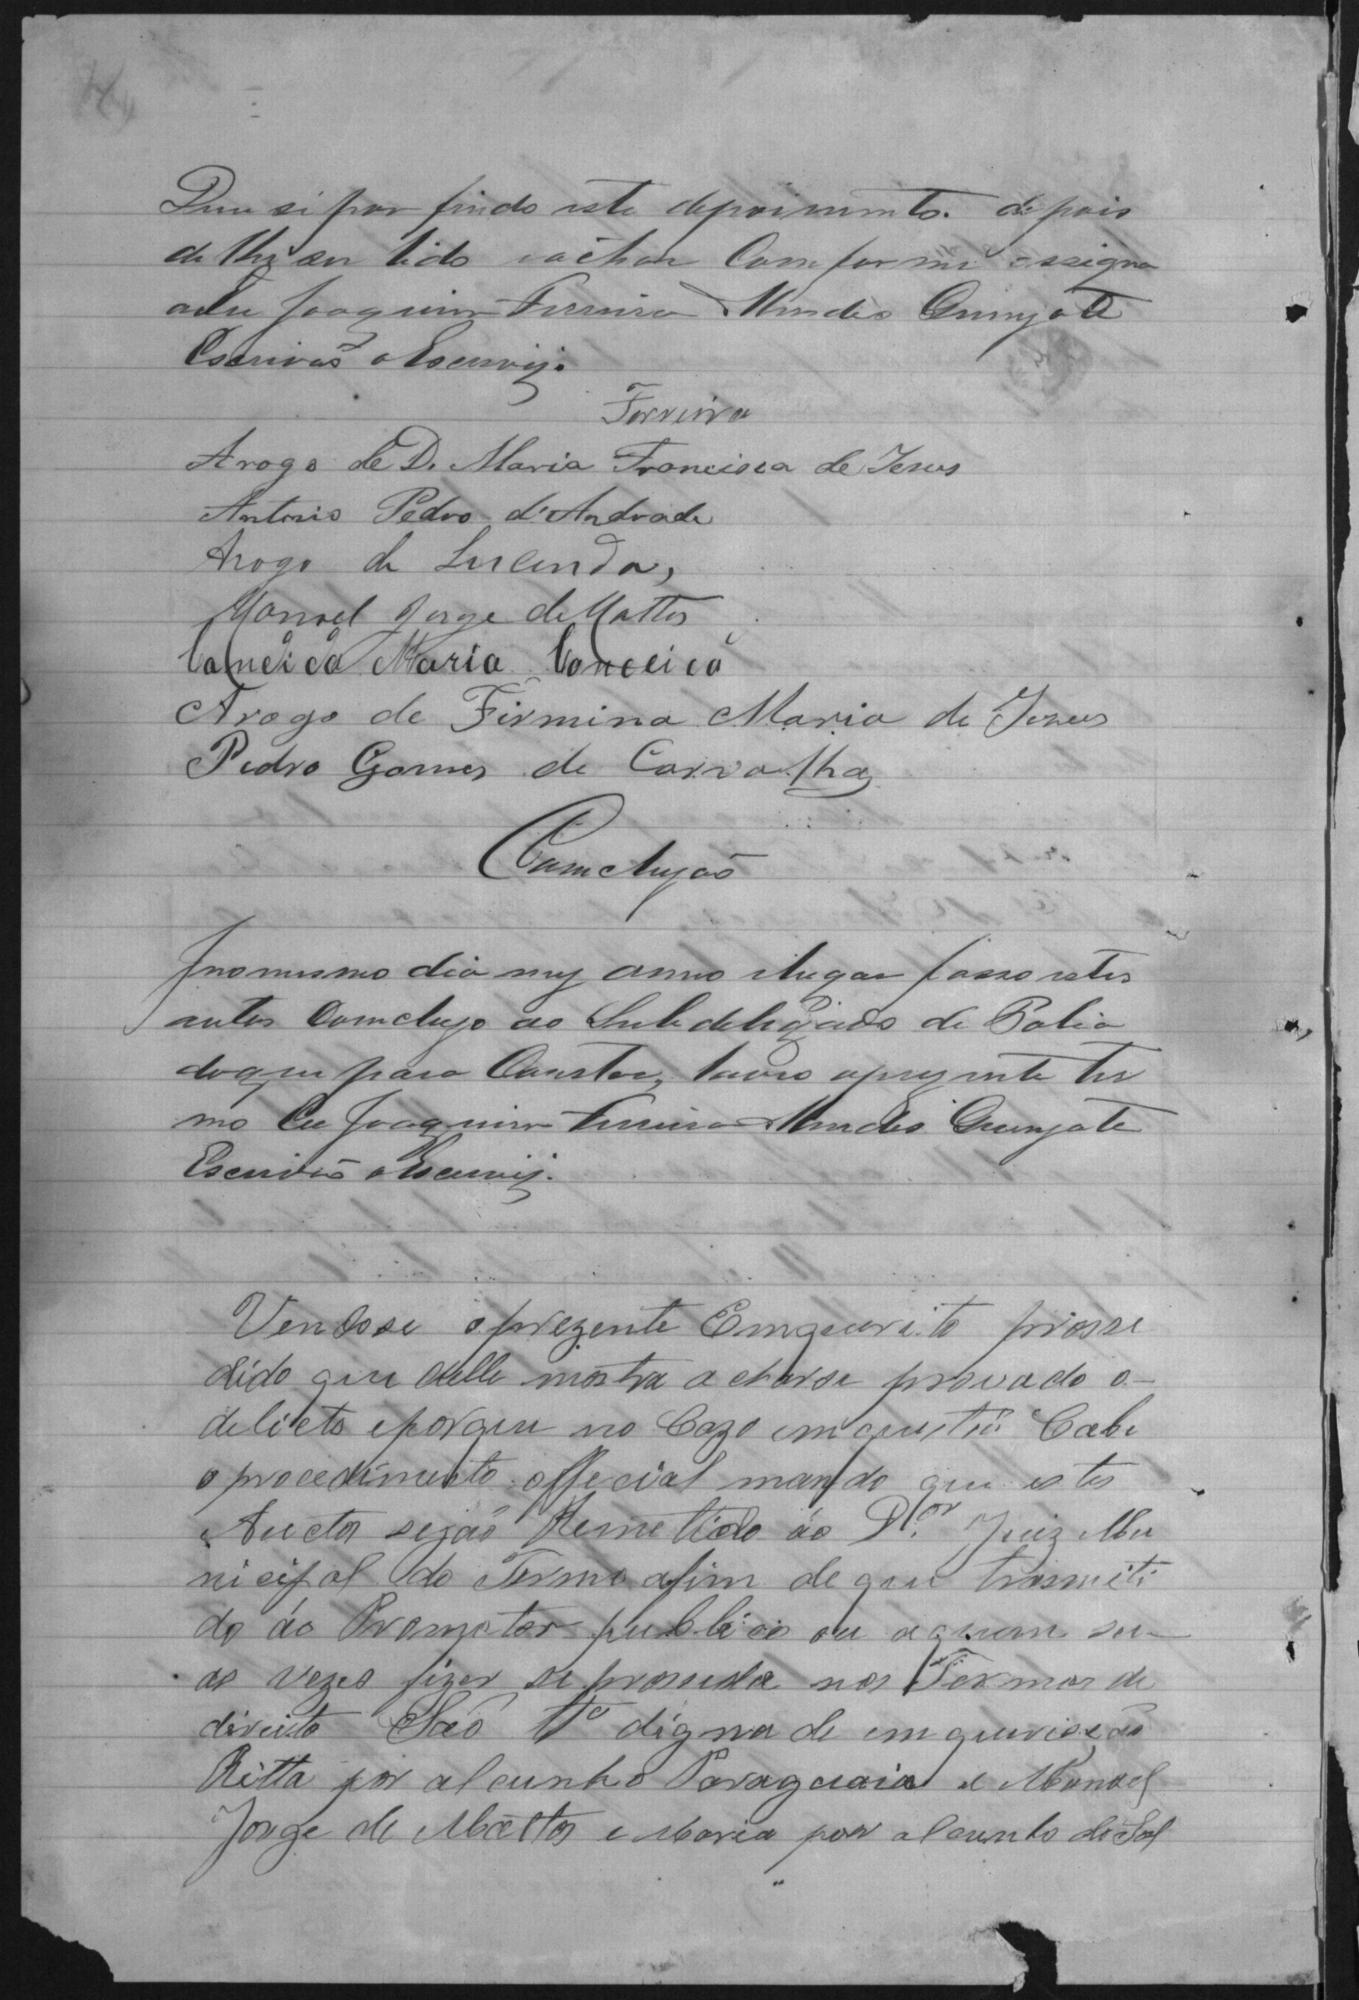 Deu si por findo este depoimento. depois
de lhe ser lido eachou Comforme assigna
Joaquim Ferreira Mendes
Escrivaõ o Escrevij.
Ferreira
Arogo de D. Maria Francisca de Jesus
Antonio Pedro d'Andrade
Arogo de Lucinda,
Manoel Jorge de Mattos
Conceicõ Maria Conceicõ
Arogo de Firmina Maria de Jezus
Pedro Gomes de Carvalho
Comcluzaõ
no mesmo dia mez anno elugar fasso estes
autos Comcluzo ao Subdelegado de Policia
doque para Constar, lavro aprezente ter
mo Eu Joaquim Ferreira Mendes
Escrivaõ o Escrevij.
Vendose oprezente Emquerito prosse
dido que delle mostra acharse provado o-
delicto eporque no Cazo emquestõ Cabe
o procedimento official mando que estes
Auctos sejaõ Remettido áo Dor. Juiz Mu
nicipal do Termo afim de que trasmeti
do áo Promotor publico ou aquem su-
as vezes fizer se prosseda nos Termos de
direito Saó Ta digna de emquericaõ
Ritta por alcunho Paraguaia e Manoel
Jorge de Mattos e Maria por alcunho de Sal